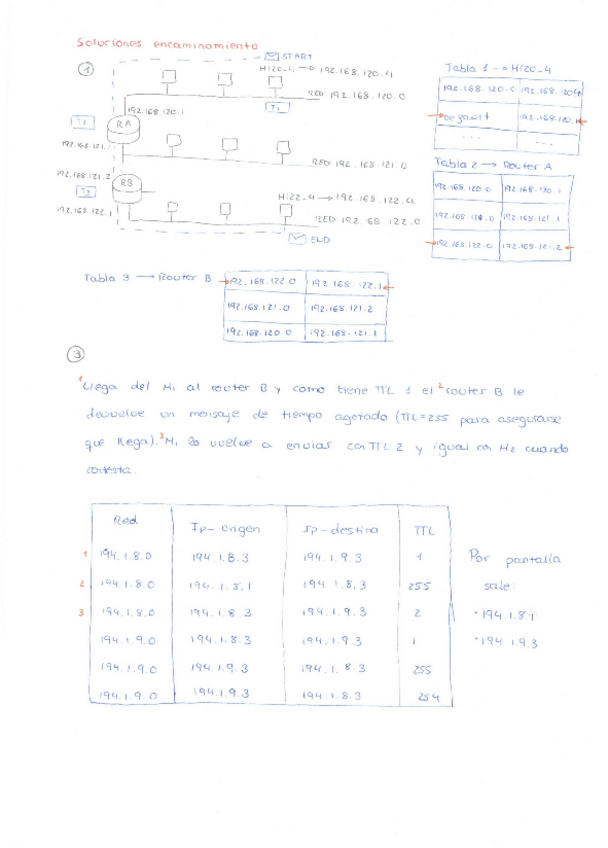 Soluciones encaminamiento
1
START
H120-4 → 192.168.120.4
RED 192.168.120.0
T1
192.168.120.1
T2
RA
192.168.121.1
RED 192.168.121.0
192.168.121.2
RB
T3
H122-4 → 192.168.122.4
192.168.122.1
RED 192.168.122.0
END
Tabla 1 → H120-4
192.168.120.0 192.168.120.4
Default 192.168.120.1
...
Tabla 2 → Router A
192.168.120.0 192.168.120.1
192.168.121.0 192.168.121.1
192.168.122.0 192.168.121.2
Tabla 3 → Router B
192.168.122.0 192.168.122.1
192.168.121.0 192.168.121.2
192.168.120.0 192.168.121.1
3
1 Llega del H1 al router B y como tiene TTL 1 el 2 router B le
devuelve un mensaje de tiempo agotado (TTL=255 para asegurarse
que llega). 3 H1 lo vuelve a enviar con TTL 2 y igual con H2 cuando
contesta.
Red Ip-origen Ip-destino TTL
1 194.1.8.0 194.1.8.3 194.1.9.3 1
2 194.1.8.0 194.1.8.1 194.1.8.3 255
3 194.1.8.0 194.1.8.3 194.1.9.3 2
194.1.9.0 194.1.8.3 194.1.9.3 1
194.1.9.0 194.1.9.3 194.1.8.3 255
194.1.9.0 194.1.9.3 194.1.8.3 254
Por pantalla
sale:
· 194.1.8.1
· 194.1.9.3